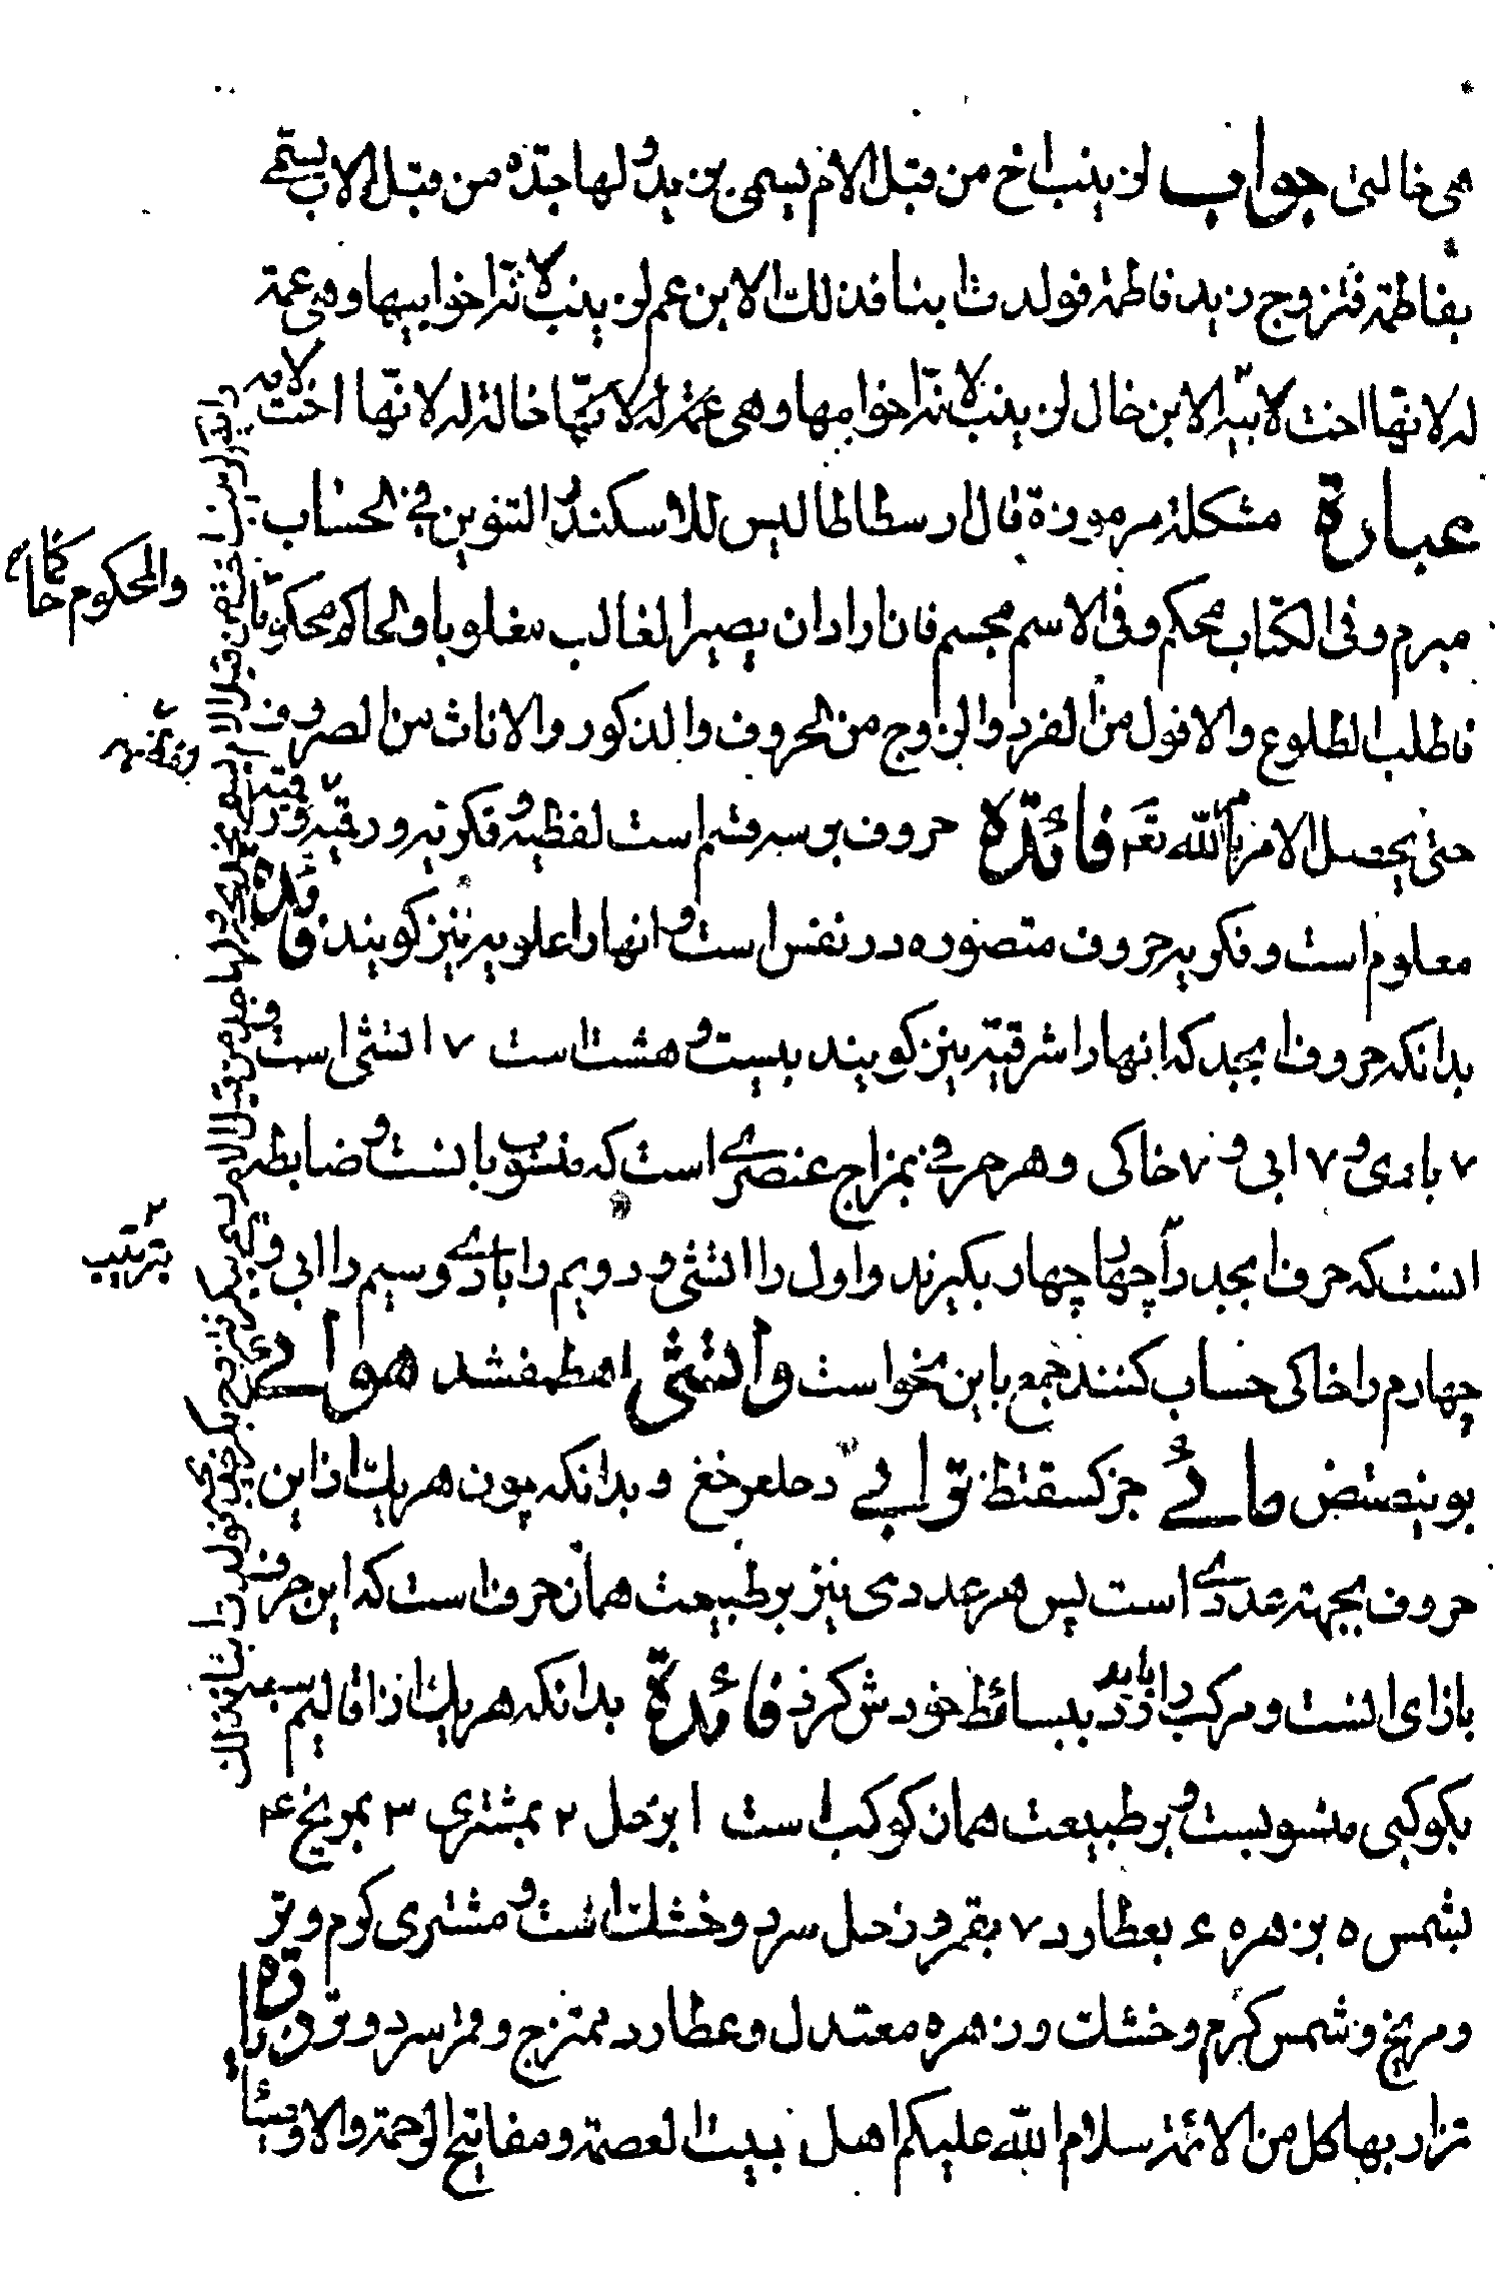 هی خالتی جواب لزینب اخ من قبل الام یسمی بزید ولها جدة من قبل الاب یسمی
بفاطمة فتزوج زید فاطمة فولدت ابنا فذلك الابن عم لزینب لانه اخو ابیها وهی عمة
له لانها اخت لابیه الابن خال لزینب لانه اخو امها وهی عمة له لانها خالة له لانها اخت لامه
عبارة مشکلة مرموزة قال ارسطاطالیس للاسکندر التنوین فی الحساب
مبرم وفی الکتاب محکم وفی الاسم مجسم فان اراد ان یصیر الغالب مغلوبا والحاکم محکوما
فاطلب الطلوع والافول من الفرد والزوج من الحروف والذکور والاناث من الصروف
حتی یحصل الامر بامر الله تعه فائدة حروف بر سه قسم است لفظیه و فکریه و رقمیه و رقمیه
معلوم است و فکریه حروف متصوره در نفس است و انها را علویه نیز کویند فائده
بدانکه حروف ابجد که انها را شرقیه نیز کویند بیست و هشت است ۷ اتشی است و
۷ بادی و ۷ ابی و ۷ خاکی و هر حرفی بمزاج عنصری است که منسوب بانست و ضابطه
انست که حرف ابجد را چهار چهار بکیرند و اول را اتشی و دویم را بادی و سیم را ابی و
چهارم را خاکی حساب کنند جمع باین نحو است و اتشی اهطمفشذ هوائی
بوینصتض مائی جزکسقثظ ترابی دحلعرخغ و بدانکه چون هر یك از این
حروف بجهته عددی است پس هر عددی نیز بر طبیعت همان حرف است که این حرف
بازای انست و مرکب را باید رد ببسائط خودش کرد فائدة بدانکه هر یك از اقالیم سبعه
بکوکبی منسوبست و بر طبیعت همان کوکب است ۱ بزحل ۲ بمشتری ۳ بمریخ ۴
بشمس ۵ بزهره ۶ بعطارد ۷ بقمر و زحل سرد و خشك است و مشتری کرم و تر
و مریخ و شمس کرم و خشك و زهره معتدل و عطارد ممتزج و قمر سرد و تر زیارة
تزار بها کل من الائمة سلام الله علیکم اهل بیت العصمة و مفاتیح الرحمة والاوصیاء
والمحکوم حاکما
بترتیب